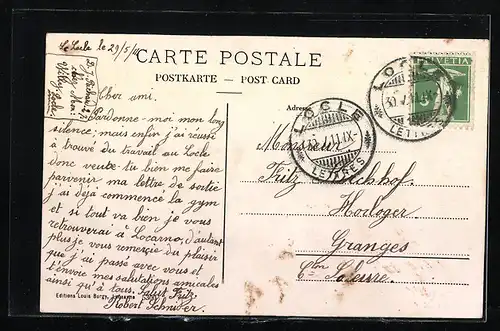 Le Locle le 29/5/11
CARTE POSTALE
POSTKARTE - POST CARD
Adresse
HELVETIA
LOCLE
30.V.11.IX-
LETTRES
LOCLE
30.V.11.IX-
LETTRES
Cher ami.
Pardonne-moi mon long
silence; mais enfin j'ai réussi
à trouvé du travail au Locle
donc veute-tu bien me faire
parvenir ma lettre de sortie
j'ai déjà commencé la gym
et si tout va bien je vous
retrouverai à Locarno, d'autant
plus je vous remercie du plaisir
que j'ai passé avec vous et
t'envoie mes salutations amicales
ainsi qu'à tous. Salut Fritz
Robert Schnider.
Editions Louis Burgy, Lausanne
Monsieur
Fritz
Horloger
Granges
Cton Soleure.